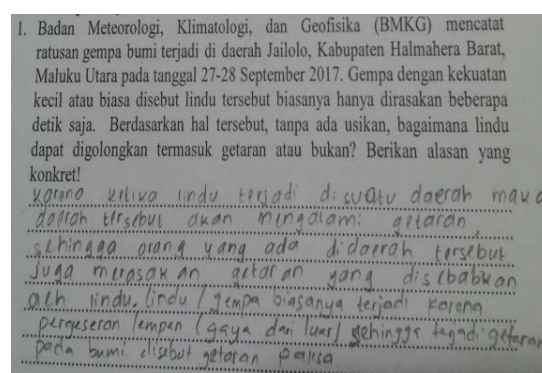 1. Badan Meteorologi, Klimatologi, dan Geofisika (BMKG) mencatat
ratusan gempa bumi terjadi di daerah Jailolo, Kabupaten Halmahera Barat,
Maluku Utara pada tanggal 27-28 September 2017. Gempa dengan kekuatan
kecil atau biasa disebut lindu tersebut biasanya hanya dirasakan beberapa
detik saja. Berdasarkan hal tersebut, tanpa ada usikan, bagaimana lindu
dapat digolongkan termasuk getaran atau bukan? Berikan alasan yang
konkret!
karena ketika lindu terjadi disuatu daerah maka
daerah tersebut akan mengalami getaran,
sehingga orang yang ada didaerah tersebut
juga merasakan getaran yang disebabkan
oleh lindu. Lindu / gempa biasanya terjadi karena
pergeseran lempen (gaya dari luar) sehingga tejadi getaran
pada bumi disebut getaran paksa